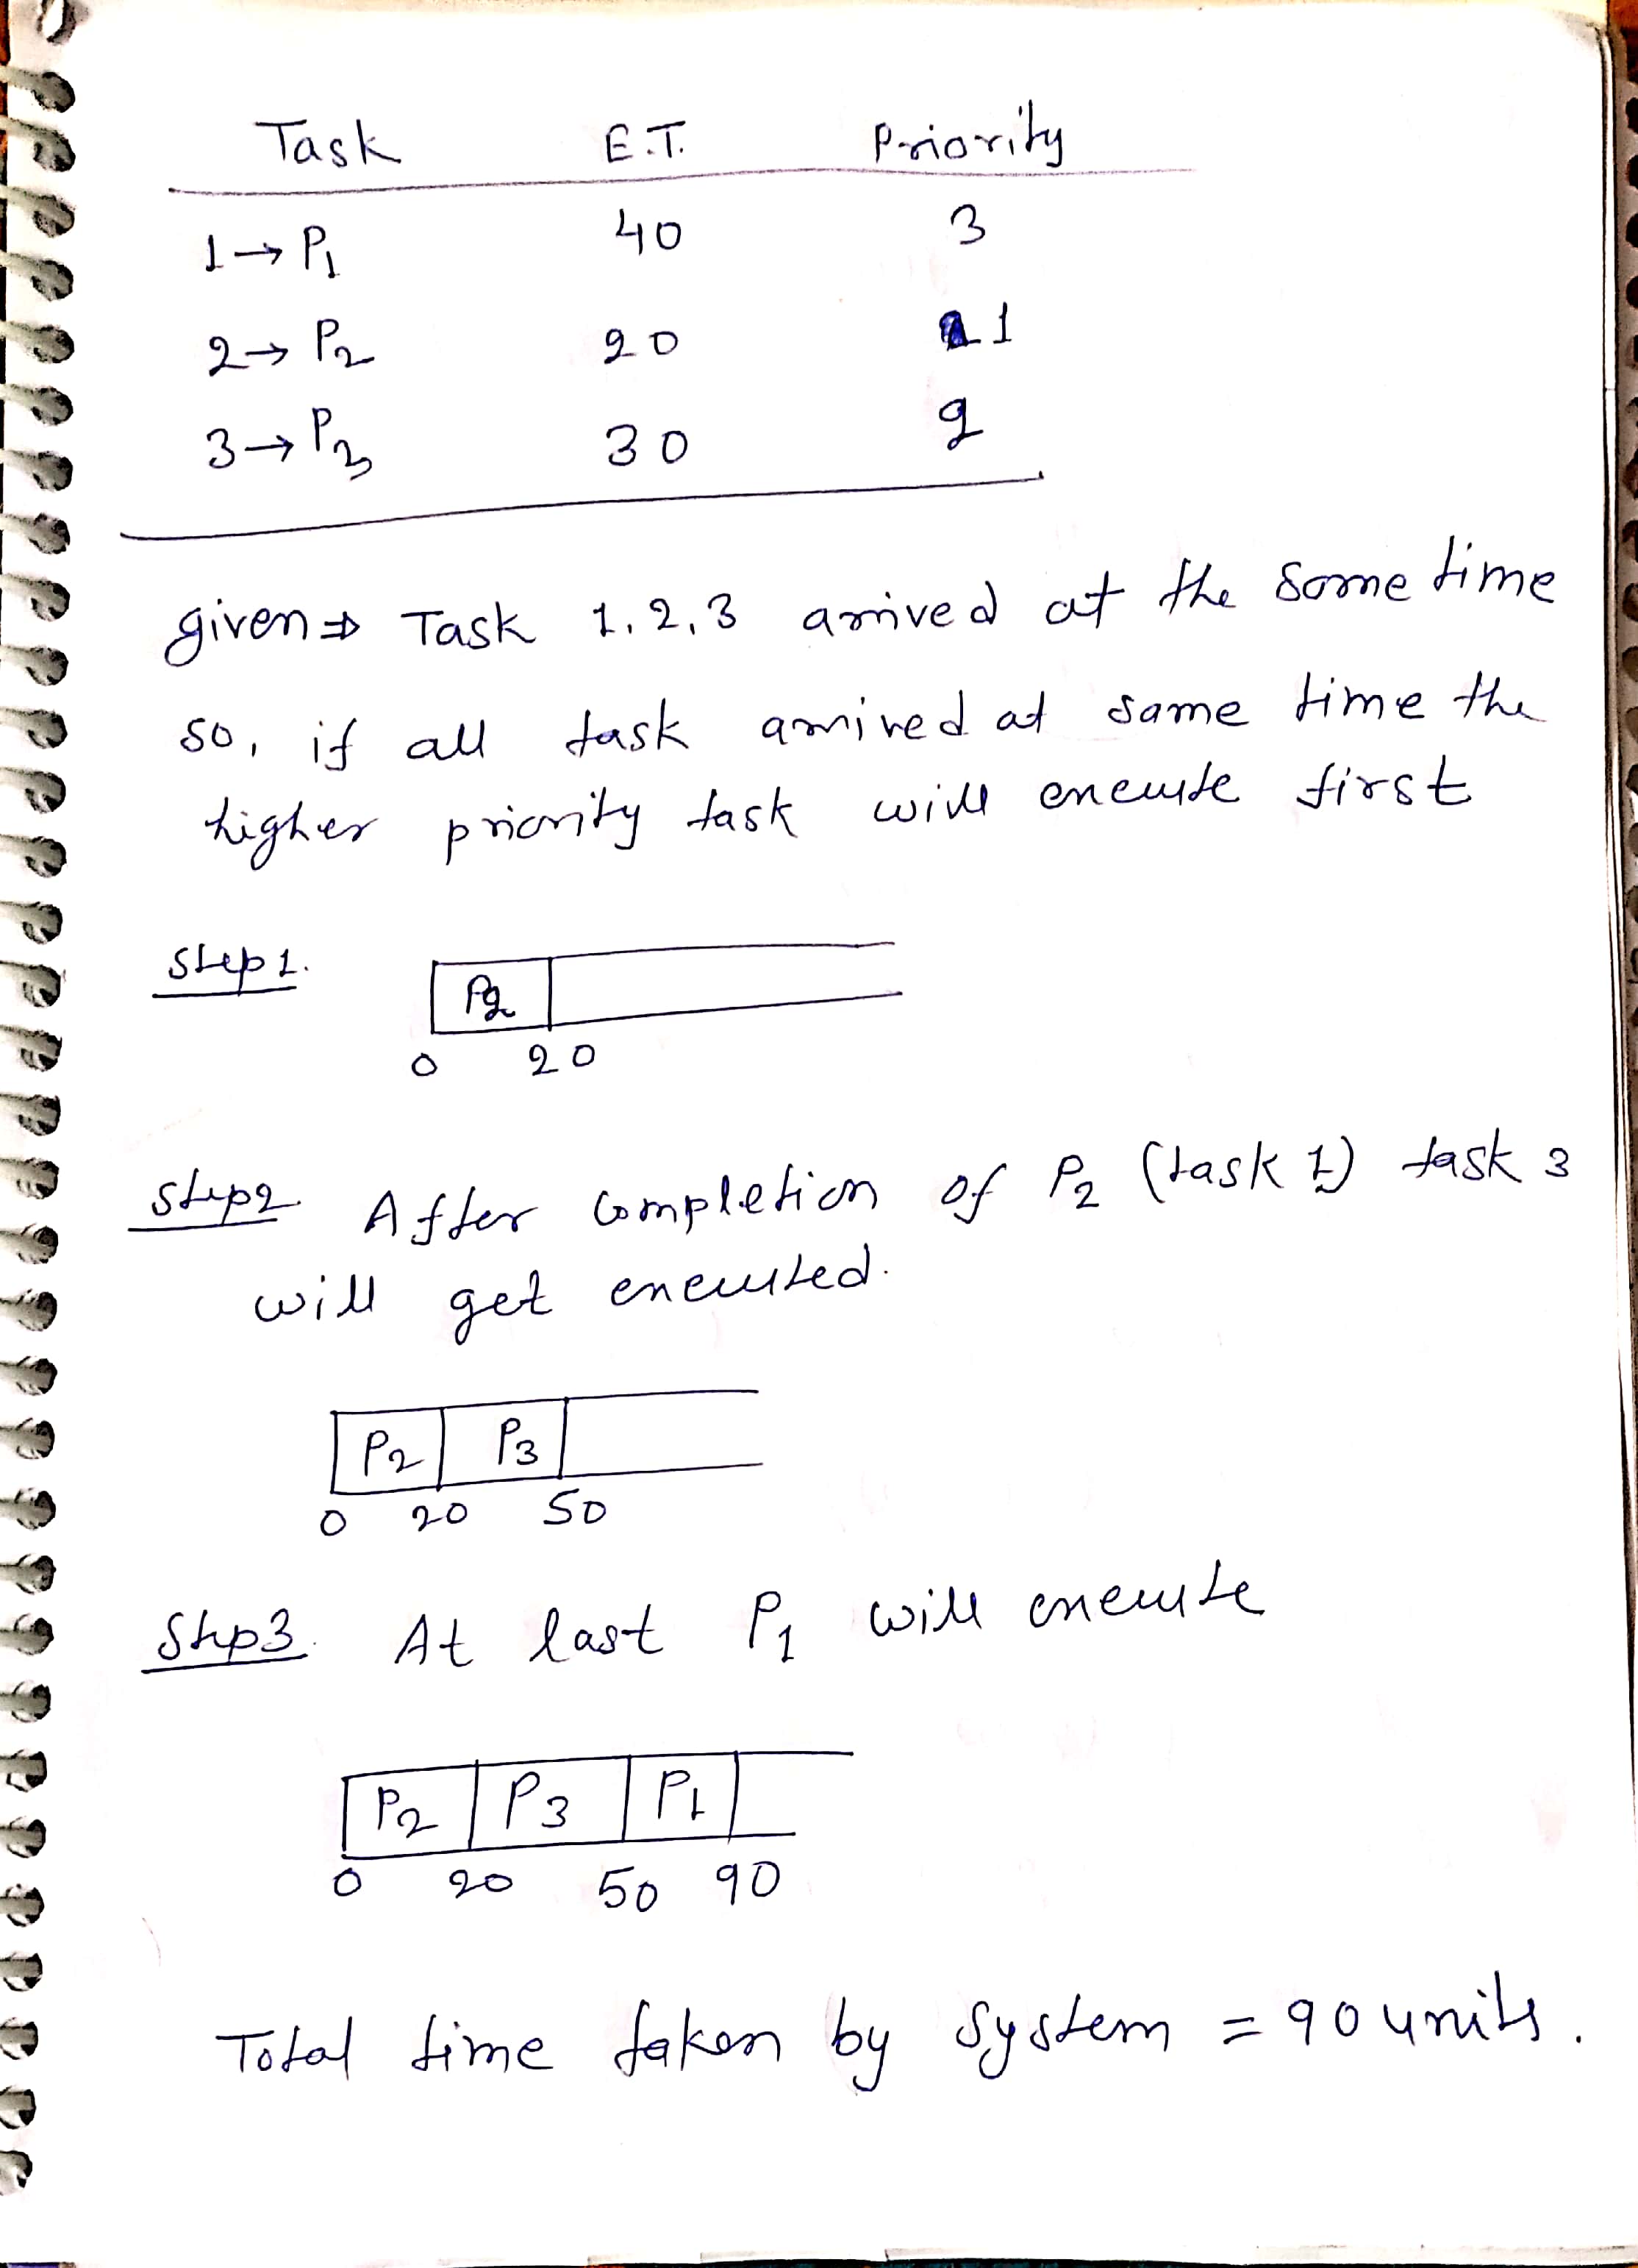 Task E.T. Priority
1→ P1 40 3
2→ P2 20 1
3→ P3 30 2
given ⇒ Task 1, 2, 3 arrived at the some time
so, if all task arrived at same time the
higher priority task will execute first
Step 1.
P2
0 20
Step2 After Completion of P2 (task 1) task 3
will get executed.
P2 P3
0 20 50
Step3. At last P1 will execute
P2 P3 P1
0 20 50 90
Total time taken by System = 90 units.